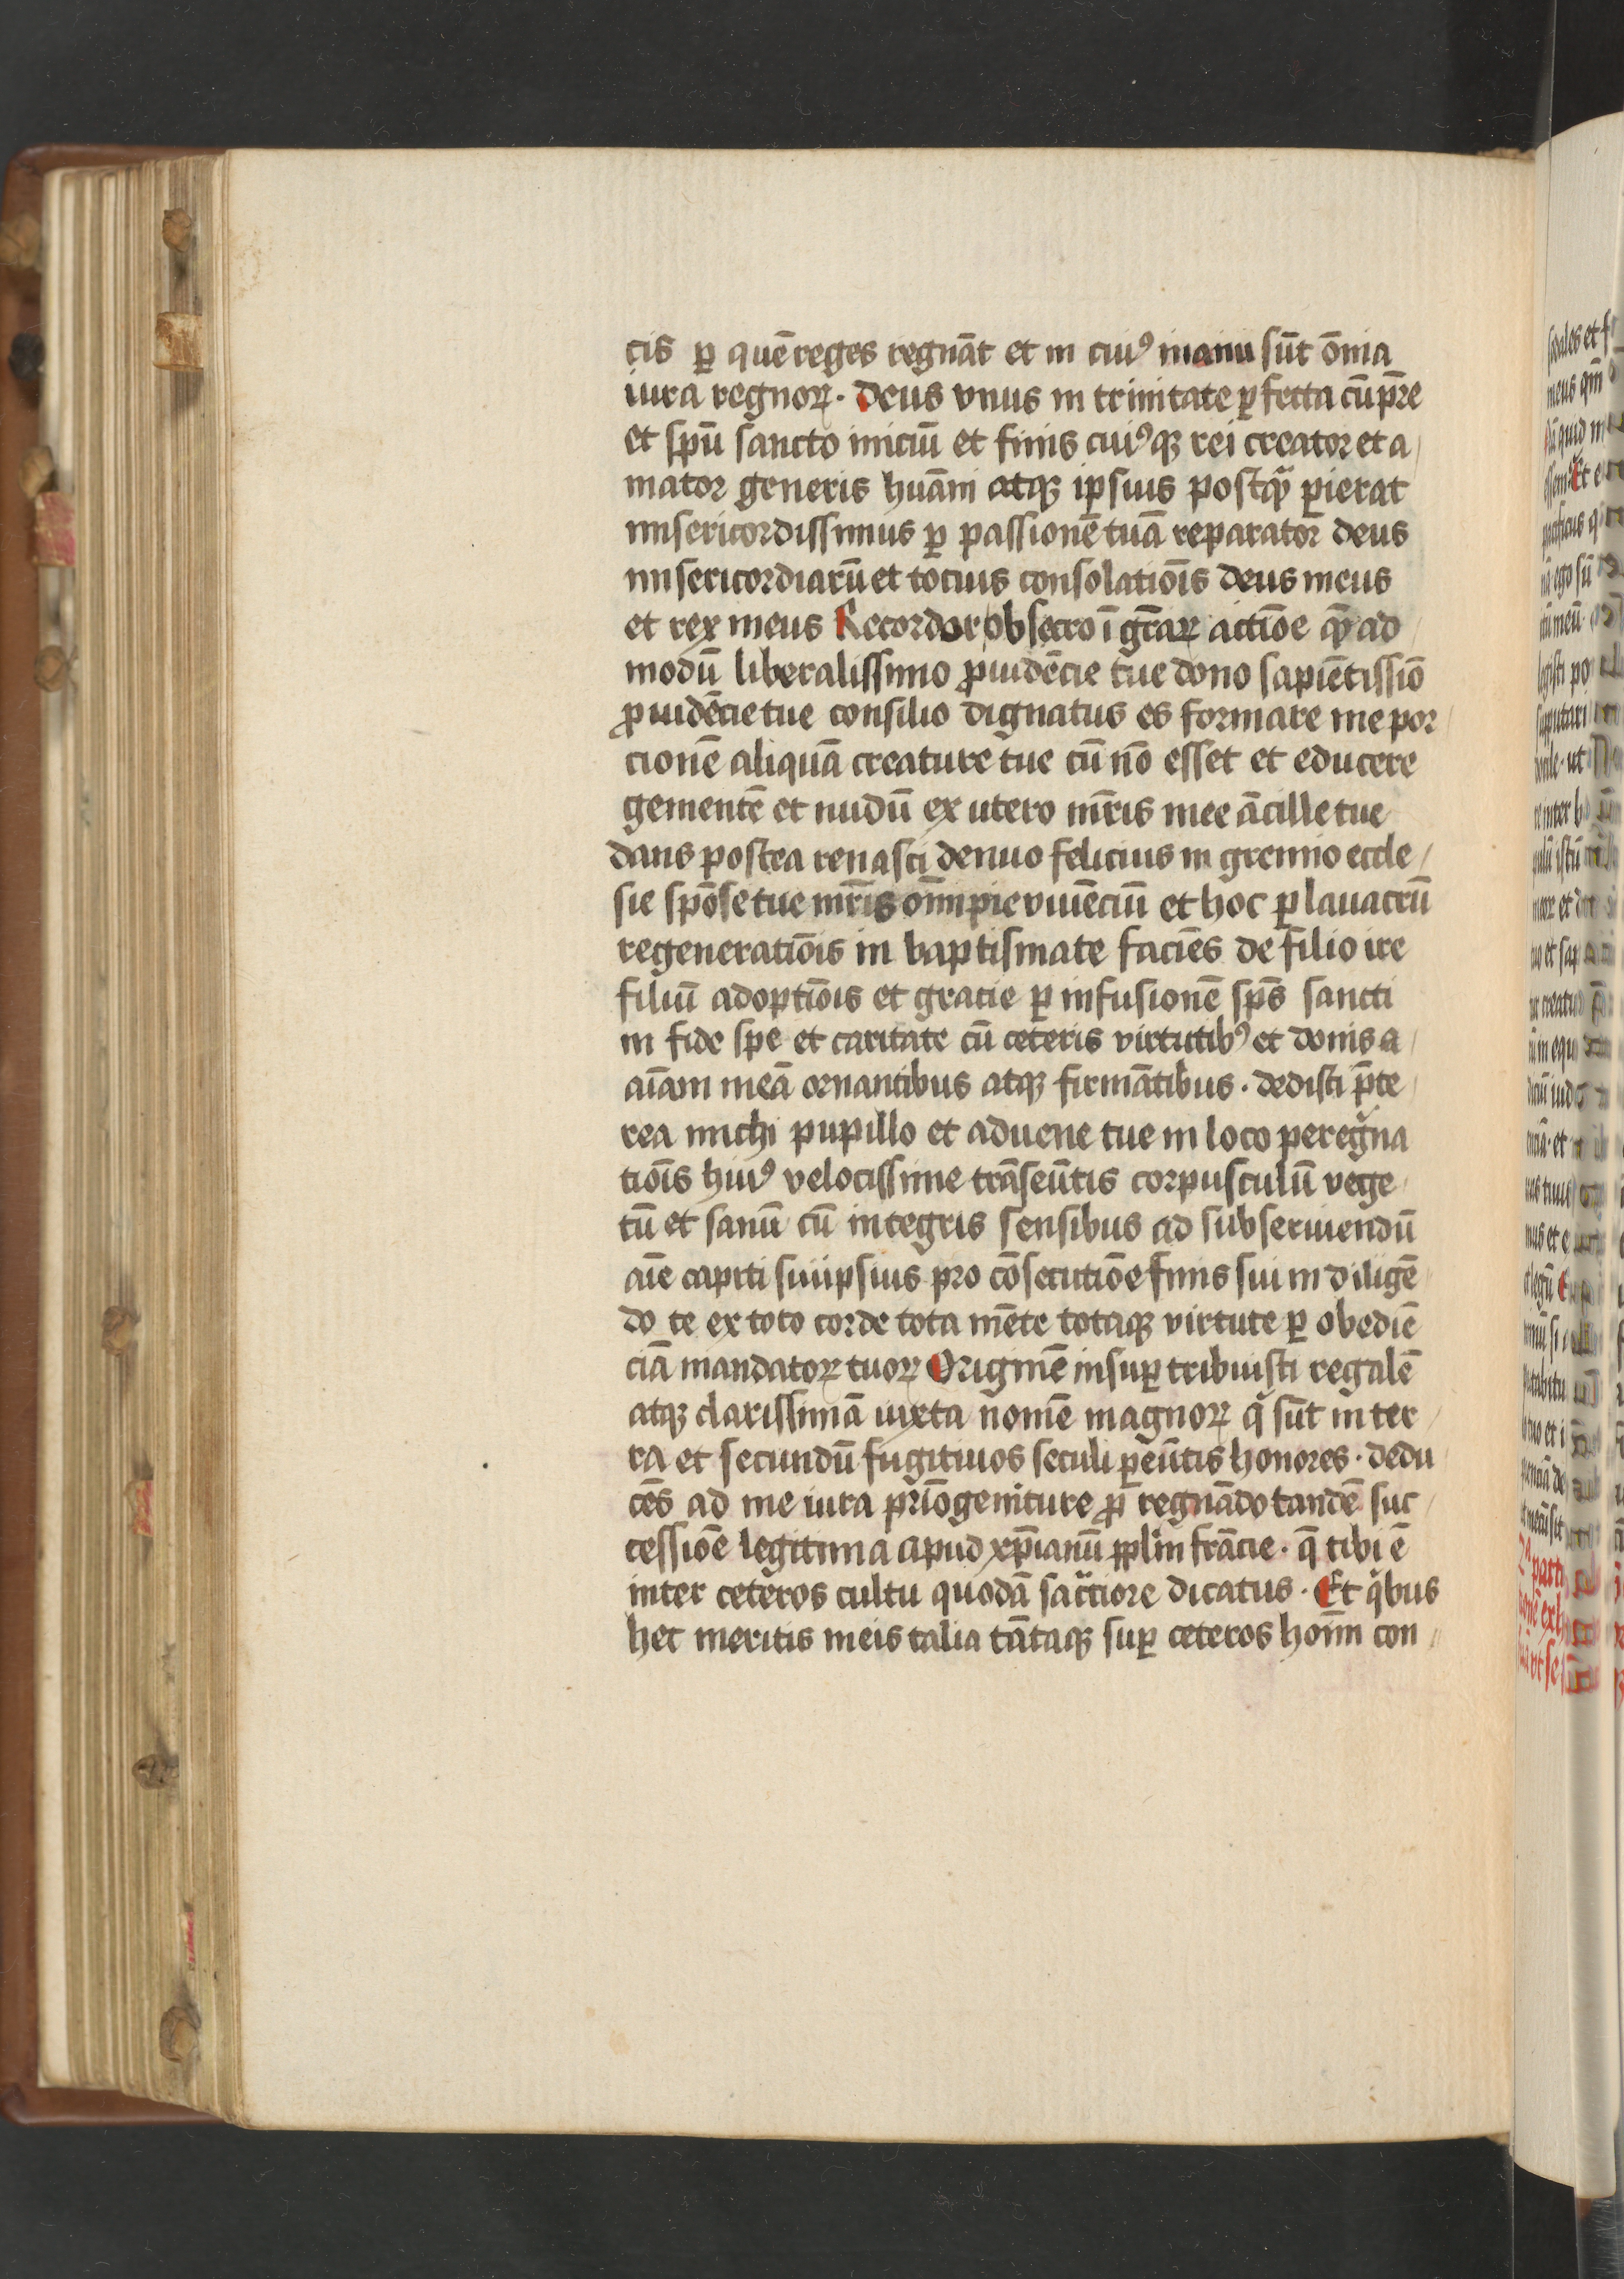 cis ꝑ quē reges regnāt et in cuiꝰ manu sūt ōnia
iura regnoꝝ · deus vnus in trinitate ꝑfecta cū pr̄e
et sp̄u sancto iniciū et finis cuiꝰqꝫ rei creator et a
mator generis hūani atqꝫ ipsius postqᷓ ꝑierat
misericordissimus ꝑ passionē tuā reparator deus
misericordiarū et tocius consolatiōis deus meus
et rex meus Recordor obsecro ī gr̄aꝝ actiōe qᷓ ad
modū liberalissimo ꝓuidēcie tue dono sapiētissiō
ꝓuidēcie tue consilio dignatus es formare me por
cionē aliquā creature tue cū nō esset et educere
gementē et nudū ex utero mr̄is mee ācille tue
dans postea renasci denuo felicius in gremio eccle
sie spōse tue mr̄is oīm pie viuēciū et hoc ꝑ lauacrū
regeneratiōis in baptismate faciēs de filio ire
filiū adoptiōis et gracie ꝑ infusionē sp̄s sancti
in fide spe et caritate cū ceteris virtutibꝰ et donis a
aīam meā ornantibus atqꝫ firmātibus · dedisti p̄te
rea michi pupillo et aduene tue in loco peregͥna
tiōis huiꝰ velocissime trāseūtis corpusculū vege
tū et sanū cū integris sensibus ad subseruiendū
aīe capiti sui ipsius pro cōsecutiōe finis sui in diligē
do te ex toto corde tota mēte totaqꝫ virtute ꝑ obediē
ciā mandatoꝝ tuoꝝ Originē insuꝑ tribuisti regalē
atqꝫ clarissimā iuxta nomē magnoꝝ qͥ sūt in ter
ra et secundū fugitiuos seculi ꝑeūtis honores · dedu
cēs ad me iura prīogeniture ꝓ regnādo tandē suc
cessiōe legitima apud xp̄ianū pp̄lm frācie · qͥ tibi ē
inter ceteros cultu quodā sāctiore dicatus · Et qͥbus
hec meritis meis talia tātaqꝫ suꝑ ceteros hoīm con